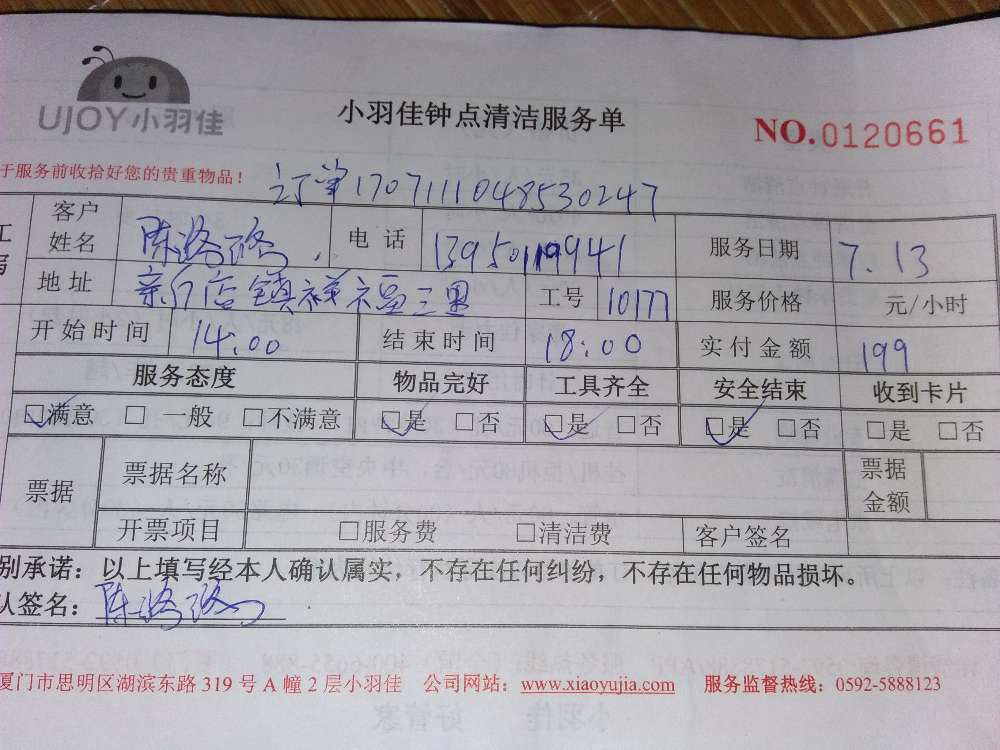 UJOY小羽佳
小羽佳钟点清洁服务单
NO.0120661
于服务前收拾好您的贵重物品！
订单1707111048530247
客户姓名 陈路路 电话 13950119941 服务日期 7.13
地址 新店镇祥福三里 工号 10177 服务价格 元/小时
开始时间 14:00 结束时间 18:00 实付金额 199
服务态度 物品完好 工具齐全 安全结束 收到卡片
☑满意 □一般 □不满意 ☑是 □否 ☑是 □否 ☑是 □否 □是 □否
票据 票据名称 票据金额
开票项目 □服务费 □清洁费 客户签名
别承诺：以上填写经本人确认属实，不存在任何纠纷，不存在任何物品损坏。
认签名：陈路路
厦门市思明区湖滨东路 319 号 A 幢 2 层小羽佳 公司网站：www.xiaoyujia.com 服务监督热线：0592-5888123